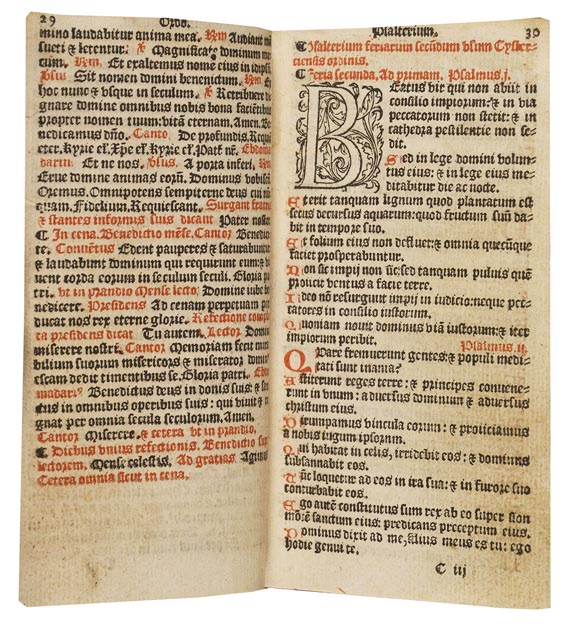 29 Ordo.
mino laudabitur anima mea. Rm Audiant mã
sueti & letentur. ℟ Magnificate dominum me
cum. Rm. Et exaltemus nome eius in
Sit nomen domini benedictum. Rm. Ex
hoc nunc & vsque in seculum. Retribuere di
gnare domine omnibus nobis bona faciẽtibus
propter nomen tuum: vitã eternam. Amen. Be
nedicamus dño. Canto. De profundis. Requi
eter. Kyrie el. Xp̃e el. Kyrie el. Pat nr̃. Ebdoma
darius. Et ne nos. vsus. A porta inferi. Rm
Erue domine animas eorũ. Dominus vobiscũ
Oremus. Omnipotens sempiterne deus cui nũ
quam. Fidelium. Requiescant. Surgant fratres
& stantes informis suis dicant Pater noster
¶ In cena. Benedictio mẽse. Cantor Benedici
te. Conuẽtus Edent pauperes & saturabuntur
& laudabunt dominum qui requirunt eum: & vi
uent corda eorum in seculum seculi. Gloria pa
tri. vt in prandio Mense lector Domine iube be
nedicere. Presidens Ad cenam perpetuam per
ducat nos rex eterne glorie. Refectione comple
ta presidens dicat Tu autem. Lector Domine
miserere nostri. Cantor Memoriam fecit mira
bilium suorum misericors & miserator dominus
escam dedit timentibus se. Gloria patri. Ebdo
madarius Benedictus deus in donis suis: & san
ctus in omnibus operibus suis: qui viuit & re
gnat per omnia secula seculorum. Amen.
Cantor Miserere. & cetera vt in prandio.
¶ Diebus vnius refectionis. Benedictio super
lectorem. Mense celestis. Ad gratias Agimus
Cetera omnia sicut in cena.
Psalterium. 30
¶ Psalterium feriarum secũdum vsum Cyster-
ciensis ordinis.
¶ Feria secunda, Ad primam. Psalmus.j.
BEatus vir qui non abiit in
consilio impiorum: & in via
peccatorum non stetit: & in
cathedra pestilentie non se-
dit.
Sed in lege domini volun-
tas eius: & in lege eius me-
ditabitur die ac nocte.
Et erit tanquam lignum quod plantatum est
secus decursus aquarum: quod fructum suũ da-
bit in tempore suo.
Et folium eius non defluet: & omnia quecũque
faciet prosperabuntur.
Non sic impij non sic: sed tanquam puluis quẽ
proiicit ventus a facie terre.
Ideo nõ resurgunt impij in iudicio: neque pec-
catores in consilio iustorum.
Quoniam nouit dominus viã iustorum: & iter
impiorum peribit. Psalmus.ij.
QUare fremuerunt gentes: & populi medi-
tati sunt inania?
Astiterunt reges terre: & principes conuene-
runt in vnum: aduersus dominum & aduersus
christum eius.
Dirumpamus vincula eorum: & proiiciamus
a nobis iugum ipsorum.
Qui habitat in celis, irridebit eos: & dominus
subsannabit eos.
Tũc loquetur ad eos in ira sua: & in furore suo
conturbabit eos.
Ego autẽ constitutus sum rex ab eo super sion
mõtẽ sanctum eius: predicans preceptum eius.
Dominus dixit ad me, filius meus es tu: ego
hodie genui te.
C iij